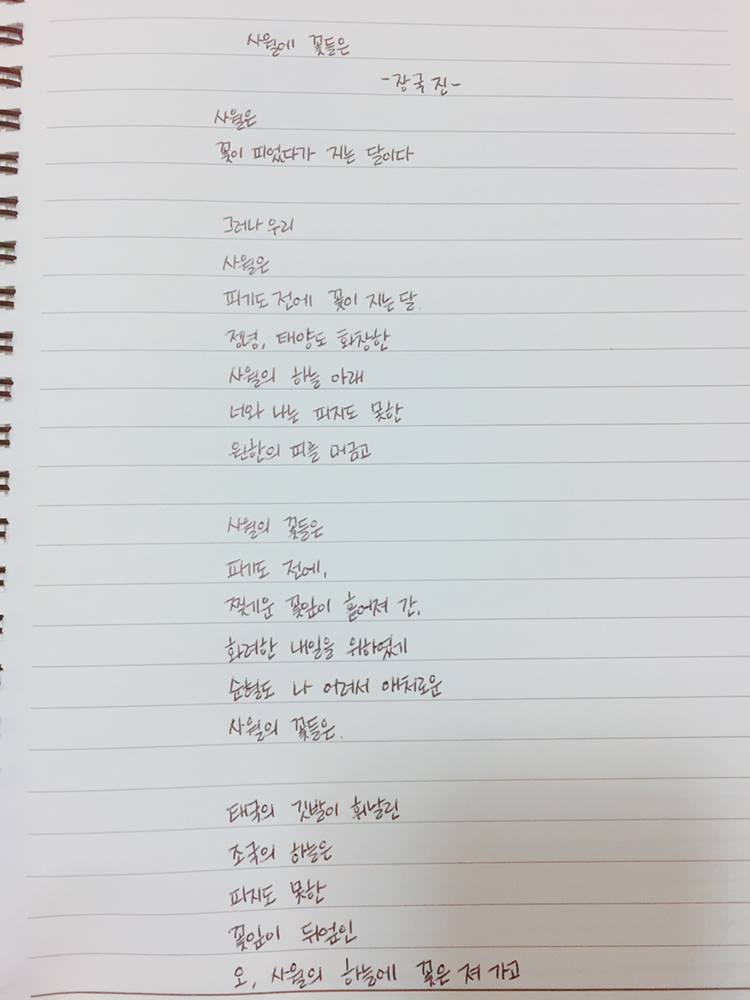 사월에 꽃들은
-장국진-
사월은
꽃이 피었다가 지는 달이다
그러나 우리
사월은
피기도 전에 꽃이 지는 달.
정녕, 태양도 화창한
사월의 하늘 아래
너와 나는 피지도 못한
원한의 피를 머금고
사월의 꽃들은
피기도 전에,
찢겨운 꽃잎이 흩어져 간,
화려한 내일을 위하였게
순혈도 나 어려서 애처로운
사월의 꽃들은.
태극의 깃발이 휘날린
조국의 하늘은
피지도 못한
꽃잎이 뒤엎인
오, 사월의 하늘에 꽃은 져 가고